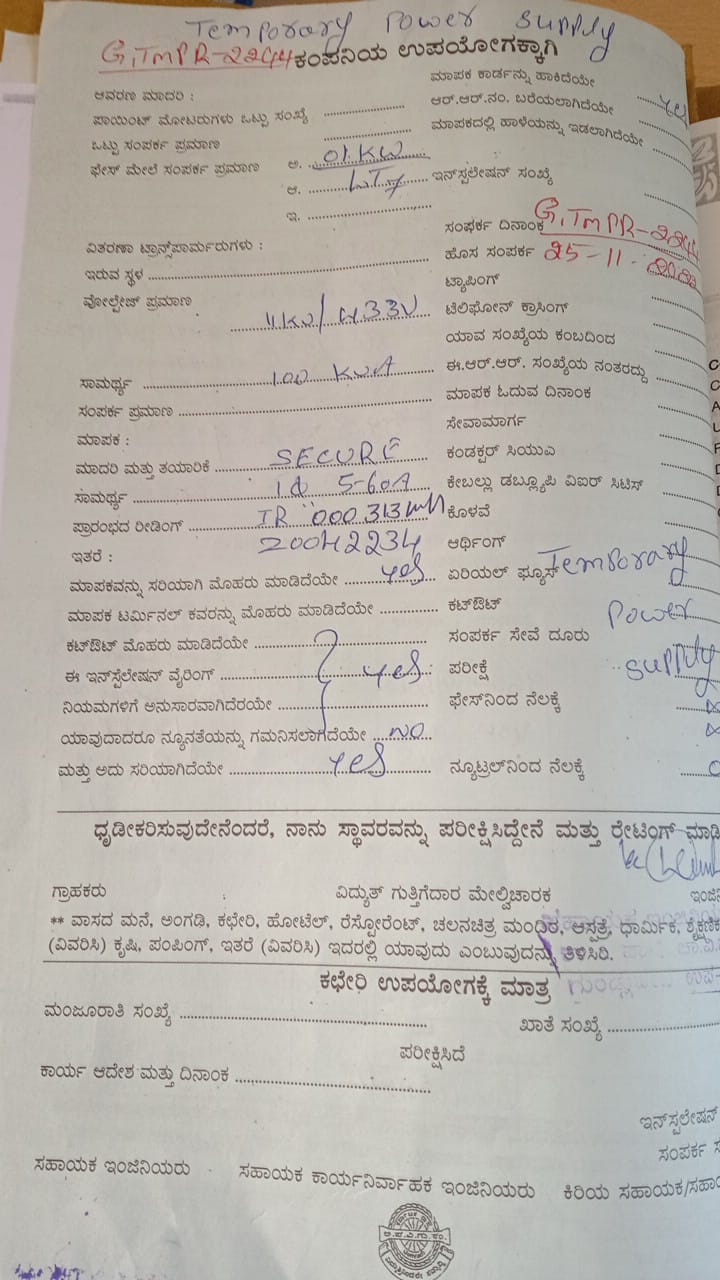 Temporary Power Supply
G.TMPR-2244 ಕಂಪನಿಯ ಉಪಯೋಗಕ್ಕಾಗಿ
ಆವರಣ ಮಾದರಿ :
ಪಾಯಿಂಟ್ ಮೋಟರುಗಳು ಒಟ್ಟು ಸಂಖ್ಯೆ
ಒಟ್ಟು ಸಂಪರ್ಕ ಪ್ರಮಾಣ
ಫೇಸ್ ಮೇಲೆ ಸಂಪರ್ಕ ಪ್ರಮಾಣ ಅ. 01 KW
ಆ. LTy
ಇ.
ವಿತರಣಾ ಟ್ರಾನ್ಸ್‌ಫಾರ್ಮರುಗಳು :
ಇರುವ ಸ್ಥಳ
ವೋಲ್ಟೇಜ್ ಪ್ರಮಾಣ
11KV/433V
ಸಾಮರ್ಥ್ಯ 100 KVA
ಸಂಪರ್ಕ ಪ್ರಮಾಣ
ಮಾಪಕ :
ಮಾದರಿ ಮತ್ತು ತಯಾರಿಕೆ SECURE
ಸಾಮರ್ಥ್ಯ 1Φ 5-60A
ಪ್ರಾರಂಭದ ರೀಡಿಂಗ್ IR 000313
ಇತರೆ : 20042234
ಮಾಪಕವನ್ನು ಸರಿಯಾಗಿ ಮೊಹರು ಮಾಡಿದೆಯೇ yes
ಮಾಪಕ ಟರ್ಮಿನಲ್ ಕವರನ್ನು ಮೊಹರು ಮಾಡಿದೆಯೇ
ಕಟ್‌ಔಟ್ ಮೊಹರು ಮಾಡಿದೆಯೇ
ಈ ಇನ್‌ಸ್ಟಲೇಷನ್ ವೈರಿಂಗ್ yes
ನಿಯಮಗಳಿಗೆ ಅನುಸಾರವಾಗಿದೆರಯೇ
ಯಾವುದಾದರೂ ನ್ಯೂನತೆಯನ್ನು ಗಮನಿಸಲಾಗಿದೆಯೇ NO
ಮತ್ತು ಅದು ಸರಿಯಾಗಿದೆಯೇ yes
ಮಾಪಕ ಕಾರ್ಡನ್ನು ಹಾಕಿದೆಯೇ
ಆರ್.ಆರ್.ನಂ. ಬರೆಯಲಾಗಿದೆಯೇ
ಮಾಪಕದಲ್ಲಿ ಹಾಳೆಯನ್ನು ಇಡಲಾಗಿದೆಯೇ
ಇನ್‌ಸ್ಪಲೇಷನ್ ಸಂಖ್ಯೆ
ಸಂಪರ್ಕ ದಿನಾಂಕ G.TMPR-2244
ಹೊಸ ಸಂಪರ್ಕ 25-11-2022
ಟ್ಯಾಪಿಂಗ್
ಟೆಲಿಫೋನ್ ಕ್ರಾಸಿಂಗ್
ಯಾವ ಸಂಖ್ಯೆಯ ಕಂಬದಿಂದ
ಈ.ಆರ್.ಆರ್. ಸಂಖ್ಯೆಯ ನಂತರದ್ದು
ಮಾಪಕ ಓದುವ ದಿನಾಂಕ
ಸೇವಾಮಾರ್ಗ
ಕಂಡಕ್ಟರ್ ಸಿಯುಎ
ಕೇಬಲ್ಲು ಡಬ್ಲ್ಯೂಪಿ ವಿಐರ್ ಸಿಟಿಸ್
ಕೊಳವೆ
ಆರ್ಥಿಂಗ್
ಏರಿಯಲ್ ಫ್ಯೂಸ್ Temporary
ಕಟ್‌ಔಟ್ Power
ಸಂಪರ್ಕ ಸೇವೆ ದೂರು
ಪರೀಕ್ಷೆ Supply
ಫೇಸ್‌ನಿಂದ ನೆಲಕ್ಕೆ
ನ್ಯೂಟ್ರಲ್‌ನಿಂದ ನೆಲಕ್ಕೆ
ಧೃಡೀಕರಿಸುವುದೇನೆಂದರೆ, ನಾನು ಸ್ಥಾವರವನ್ನು ಪರೀಕ್ಷಿಸಿದ್ದೇನೆ ಮತ್ತು ರೇಟಿಂಗ್ ಮಾಡಿ
ಗ್ರಾಹಕರು ವಿದ್ಯುತ್ ಗುತ್ತಿಗೆದಾರ ಮೇಲ್ವಿಚಾರಕ
** ವಾಸದ ಮನೆ, ಅಂಗಡಿ, ಕಛೇರಿ, ಹೋಟೆಲ್, ರೆಸ್ಟೋರೆಂಟ್, ಚಲನಚಿತ್ರ ಮಂದಿರ, ಆಸ್ಪತ್ರೆ, ಧಾರ್ಮಿಕ, ಶೈಕ್ಷಣಿಕ
(ವಿವರಿಸಿ) ಕೃಷಿ, ಪಂಪಿಂಗ್, ಇತರೆ (ವಿವರಿಸಿ) ಇದರಲ್ಲಿ ಯಾವುದು ಎಂಬುವುದನ್ನು ತಿಳಿಸಿರಿ.
ಕಛೇರಿ ಉಪಯೋಗಕ್ಕೆ ಮಾತ್ರ
ಮಂಜೂರಾತಿ ಸಂಖ್ಯೆ ಖಾತೆ ಸಂಖ್ಯೆ
ಪರೀಕ್ಷಿಸಿದೆ
ಕಾರ್ಯ ಆದೇಶ ಮತ್ತು ದಿನಾಂಕ
ಇನ್‌ಸ್ಪಲೇಷನ್
ಸಂಪರ್ಕ
ಸಹಾಯಕ ಇಂಜಿನಿಯರು ಸಹಾಯಕ ಕಾರ್ಯನಿರ್ವಾಹಕ ಇಂಜಿನಿಯರು ಕಿರಿಯ ಸಹಾಯಕ/ಸಹಾ